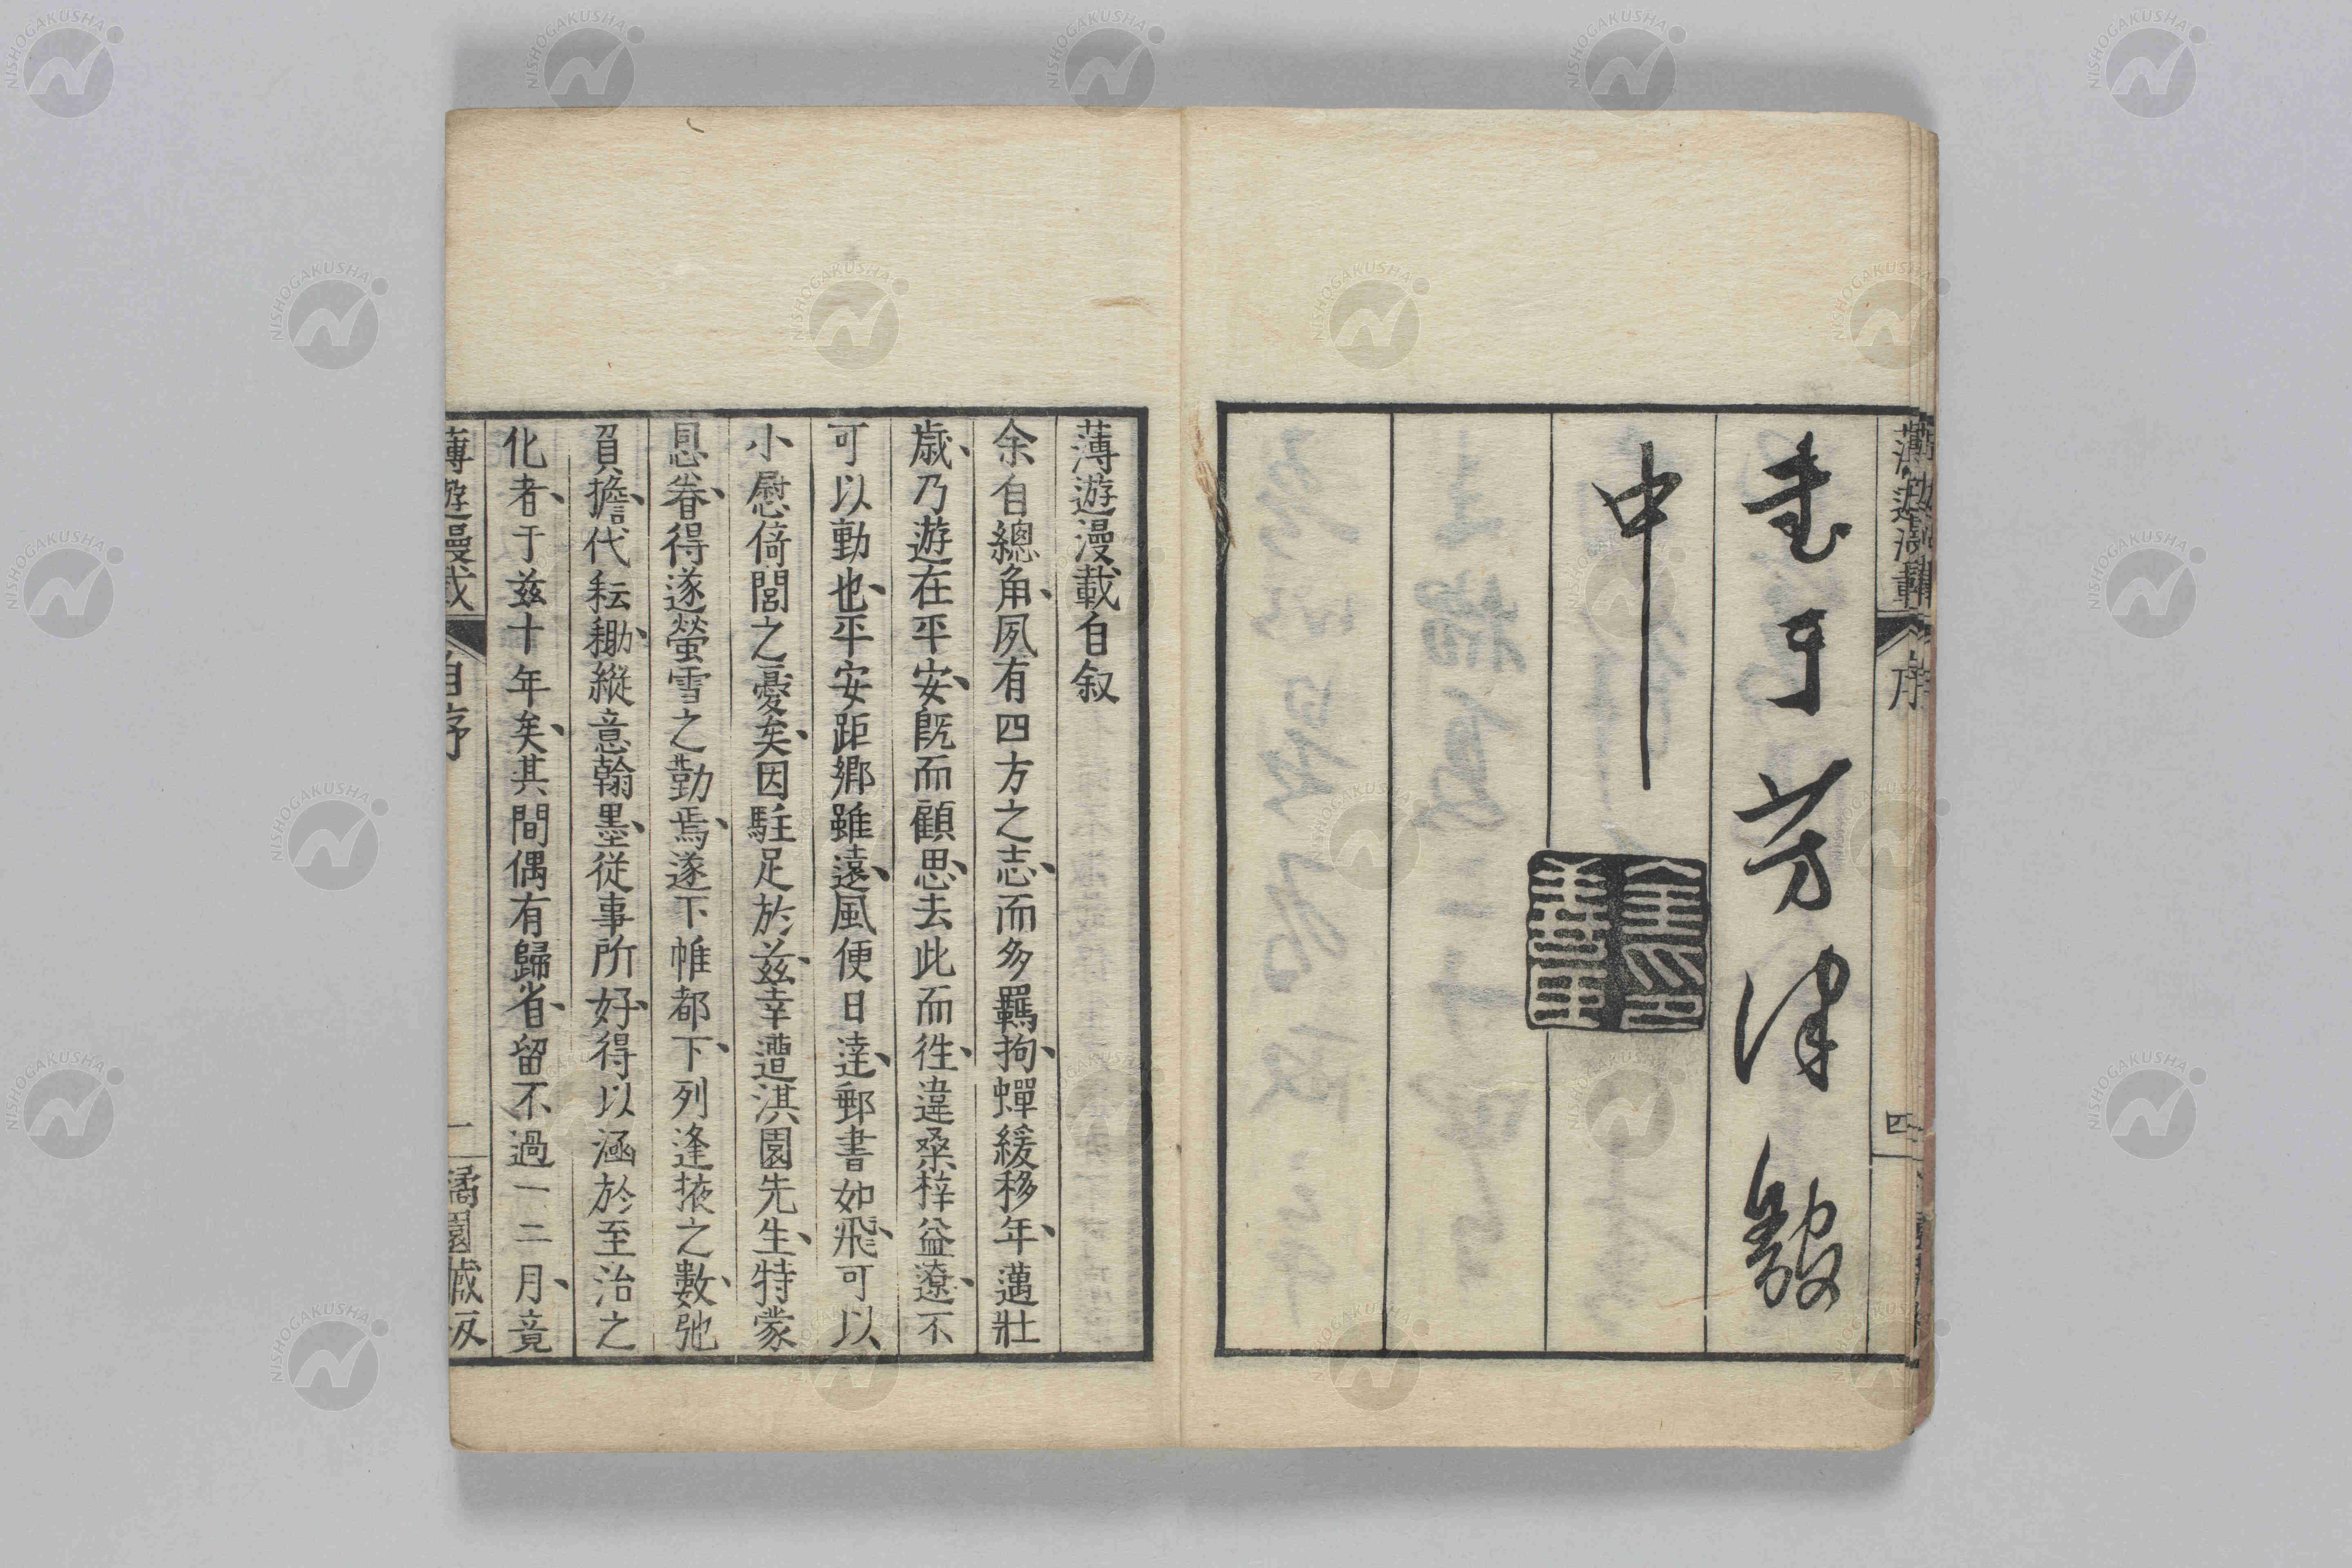 薄遊漫載
序
四
書于芳津
中
薄遊漫載自叙
余自總角、夙有四方之志、而多羈拘、蟬緩移年、邁壯
歳、乃遊在平安、既而顧思、去此而徃、違桑梓益遼、不
可以動也、平安距鄉雖遠、風便日達、郵書如飛、可以
小慰倚閭之憂矣、因駐足於茲、幸遭淇園先生、特蒙
恩眷、得遂螢雪之勤焉、遂下帷都下、列逢掖之數、弛
負擔、代耘耡、縱意翰墨、從事所好、得以涵於至治之
化者、于茲十年矣、其間偶有歸省、留不過一二月、竟
薄遊漫載
自序
一
橘園蔵板
NISHOGAKUSHA